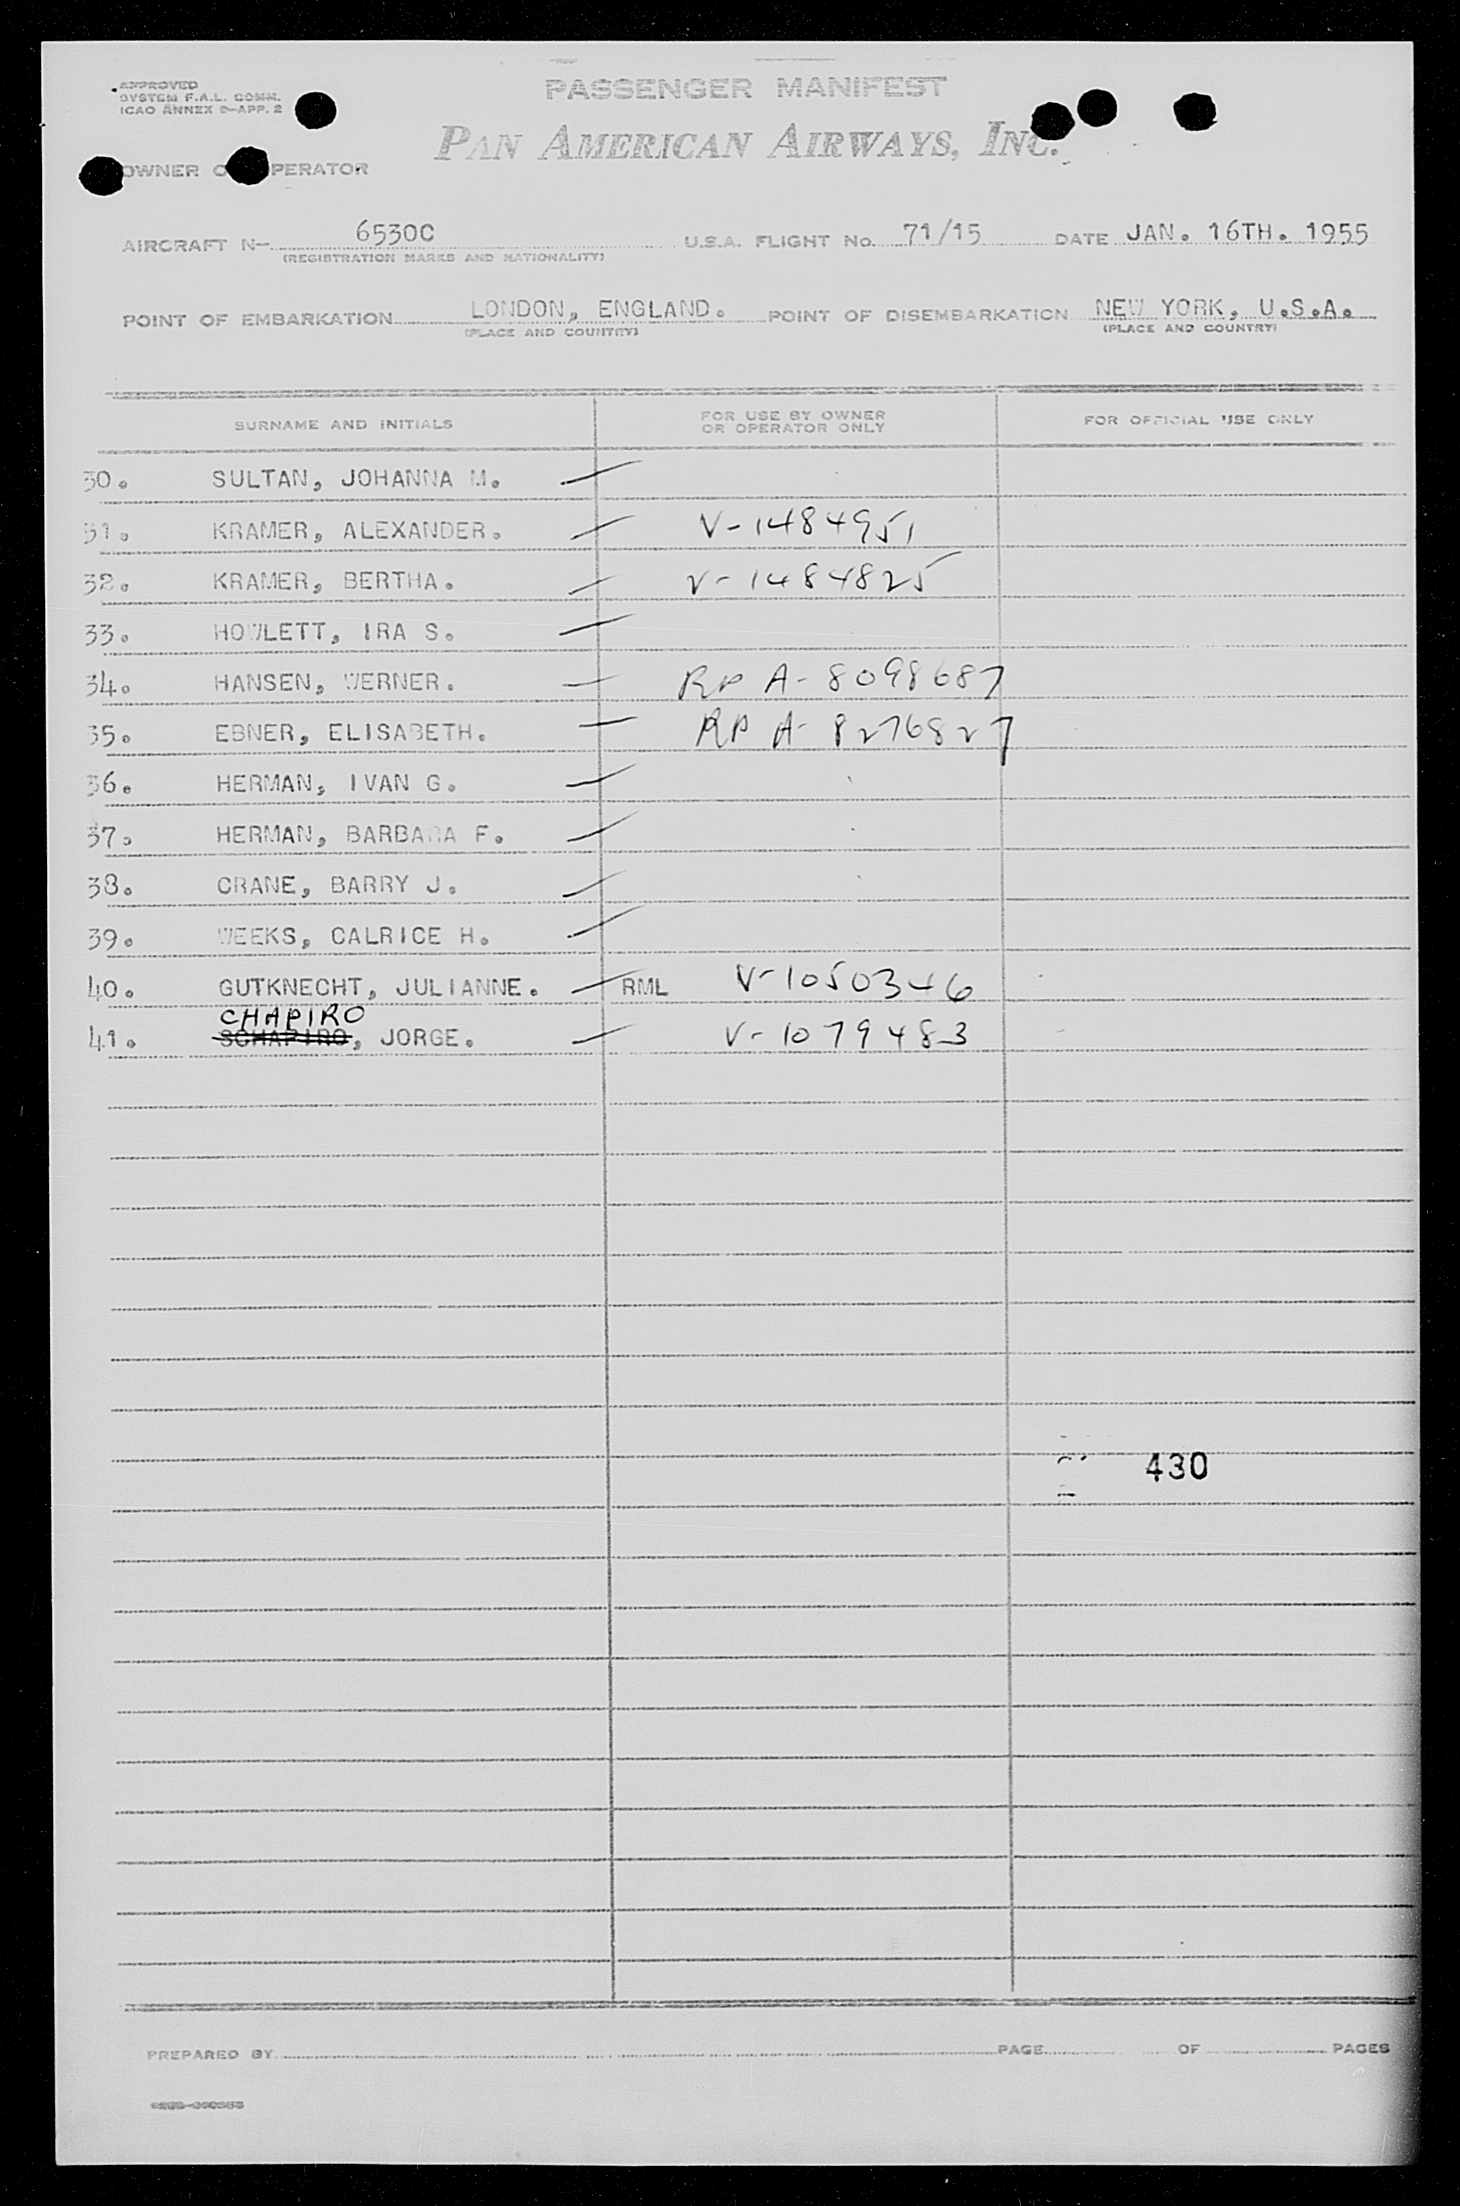 APPROVED
SYSTEM F.A.L. COMM.
ICAO ANNEX 9-APP. 2
PASSENGER MANIFEST
PAN AMERICAN AIRWAYS, INC.
OWNER O PERATOR
AIRCRAFT N- 6530C U.S.A. FLIGHT No. 71/15 DATE JAN. 16TH. 1955
(REGISTRATION MARKS AND NATIONALITY)
POINT OF EMBARKATION LONDON, ENGLAND. POINT OF DISEMBARKATION NEW YORK, U.S.A.
(PLACE AND COUNTRY) (PLACE AND COUNTRY)
SURNAME AND INITIALS FOR USE BY OWNER OR OPERATOR ONLY FOR OFFICIAL USE ONLY
30. SULTAN, JOHANNA M.
31. KRAMER, ALEXANDER. V-1484951
32. KRAMER, BERTHA. V-1484825
33. HOWLETT, IRA S.
34. HANSEN, WERNER. RP A-8098687
35. EBNER, ELISABETH. RP A-8276827
36. HERMAN, IVAN G.
37. HERMAN, BARBARA F.
38. CRANE, BARRY J.
39. WEEKS, CALRICE H.
40. GUTKNECHT, JULIANNE. RML V-1050346
CHAPIRO
41. SCHAPIRO, JORGE. V-1079483
430
PREPARED BY PAGE OF PAGES